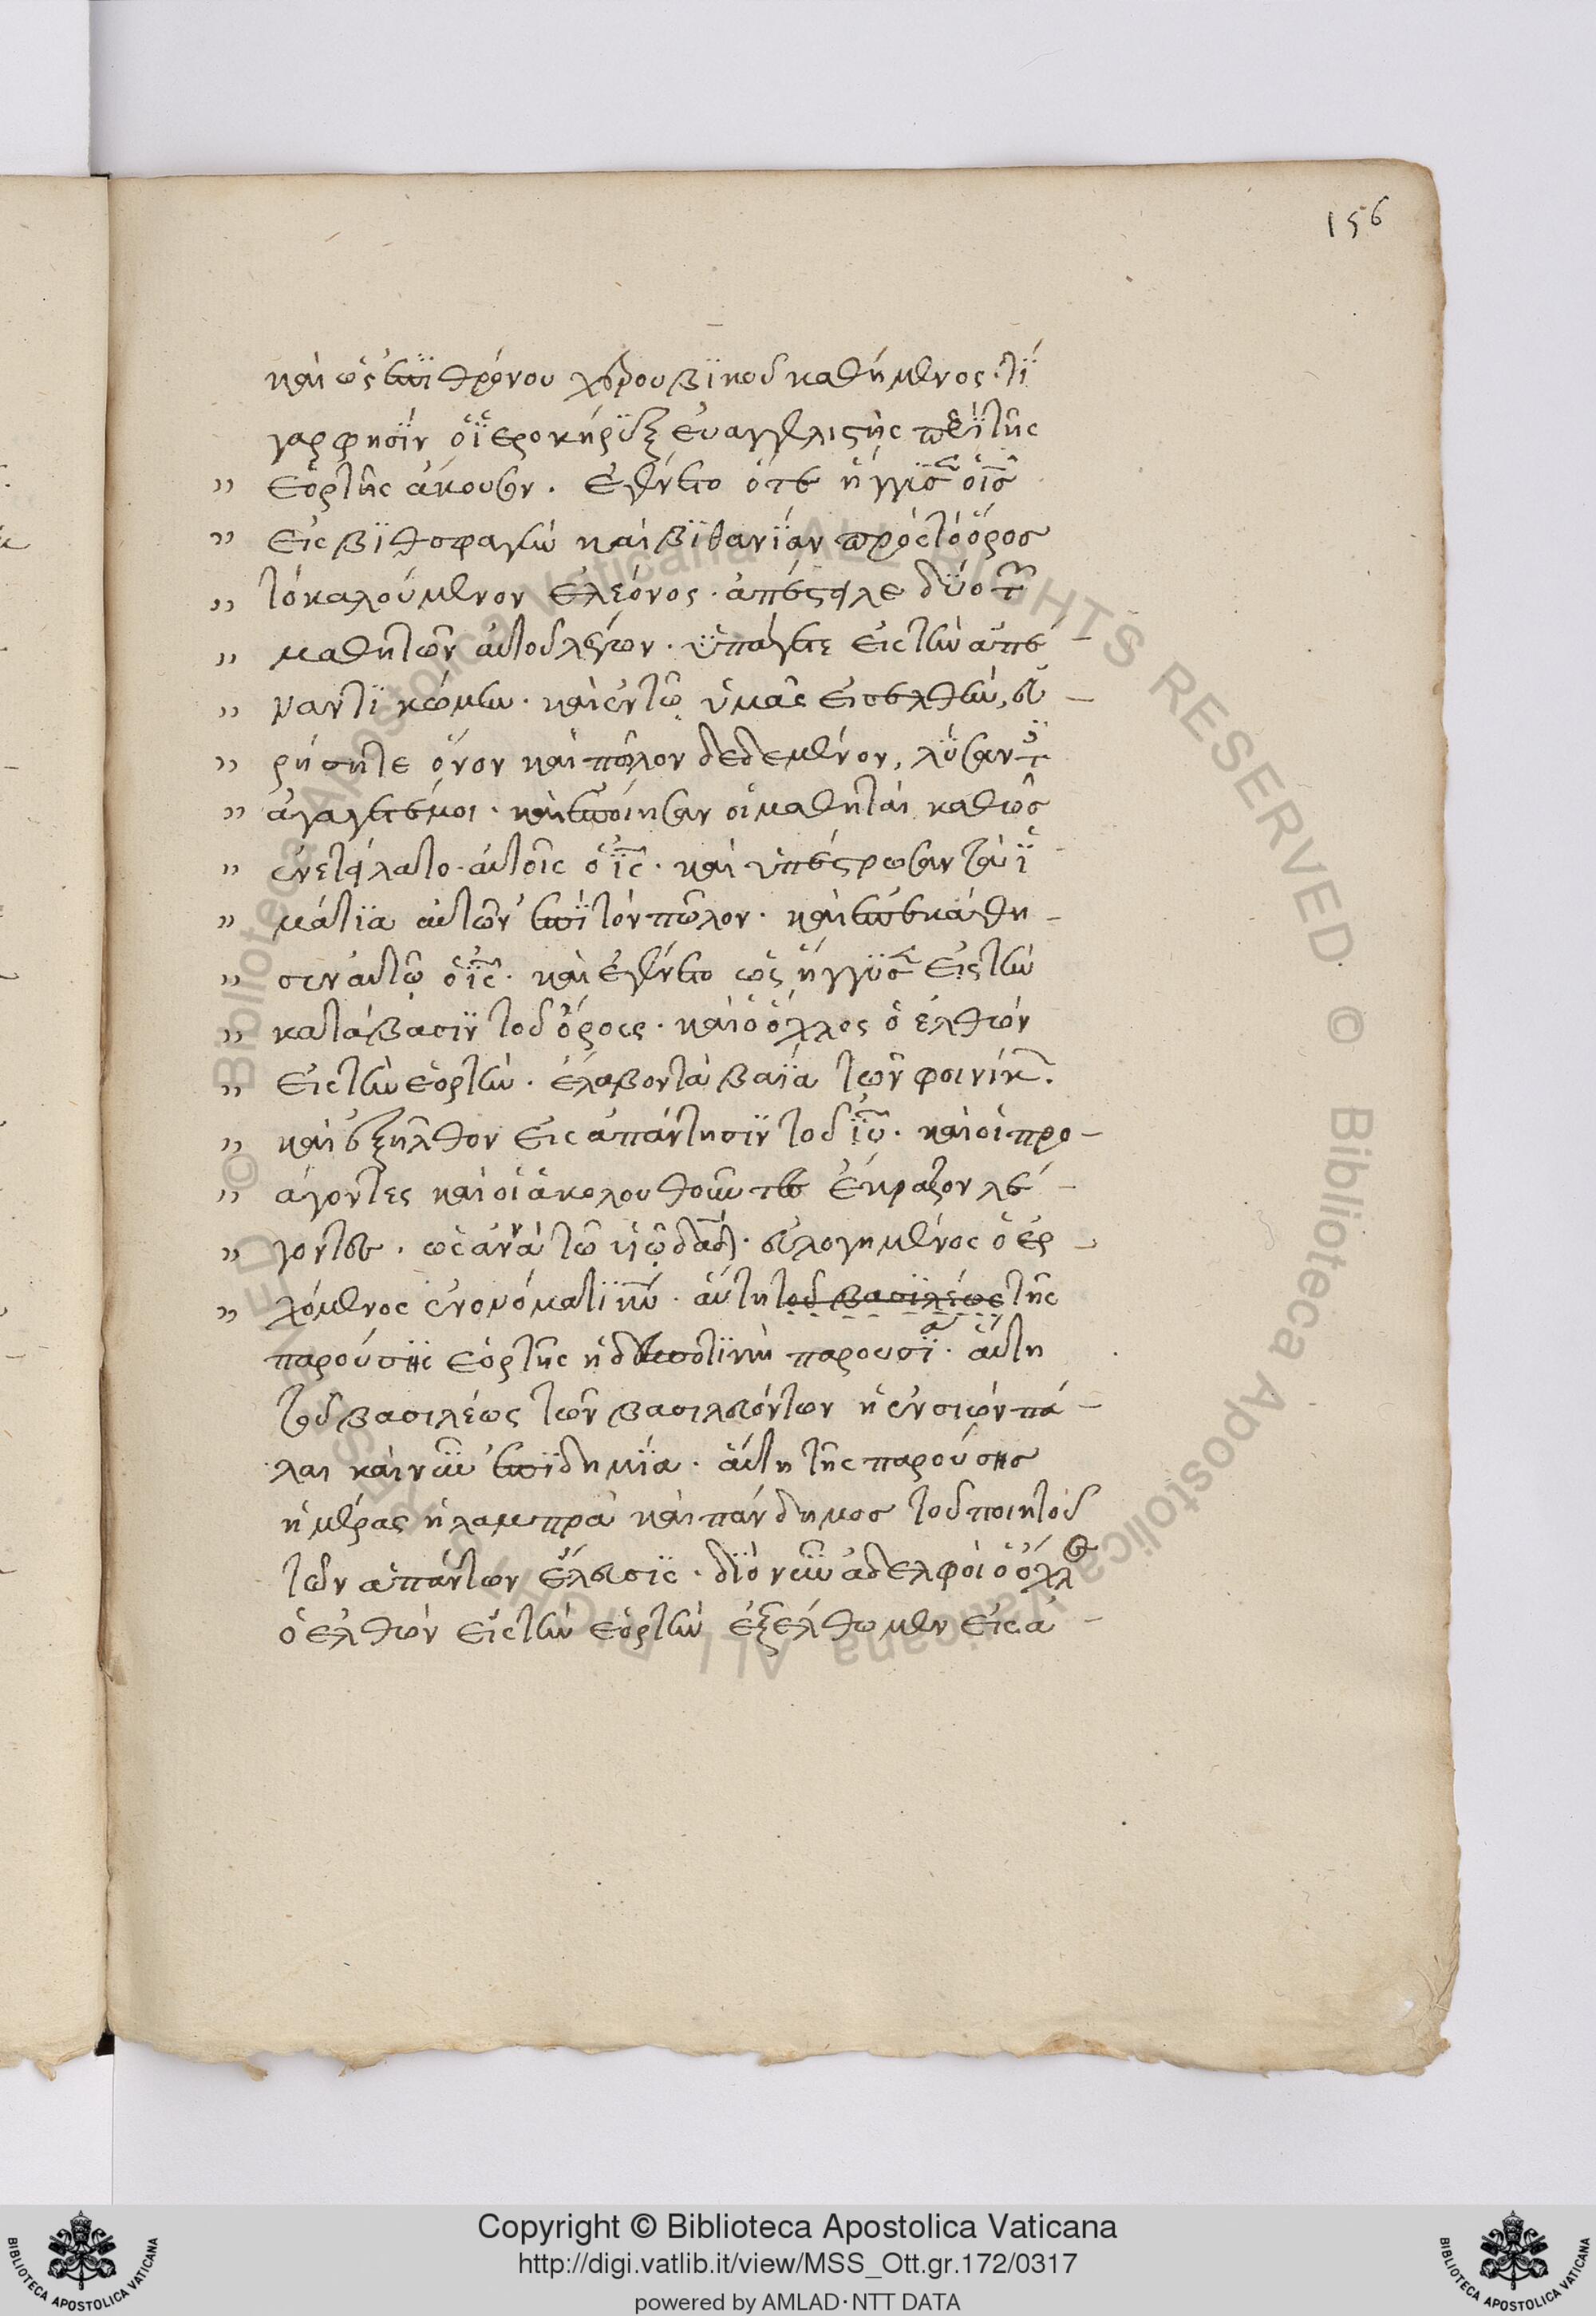 156
καὶ ὡς ἐπῒ θρόνου χερουβϊκοῦ καθήμενος· τῒ
γαρ φησῒν ὁ ϊεροκήρυξ ἐυαγγελιστὴς περῒ τῆς
" ἑορτῆς ἀκουσν. ἐγένετο ὅτε ἤγγισεν ὁ ις
" εἰς βϊθσφαγὴν καὶ βϊθανϊαν πρὸς τὸ ὄρος
" τὸ καλούμενον ἐλεόνος· ἀπέστειλε δύο τῶν
" μαθητῶν ἀυτοῦ λέγων· ὑπάγετε εἰς τὴν ἀπέ-
" ναντϊ κώμην· καὶ ἐν τῷ ὑμᾶς εισελθεῖν, εὑ-
" ρήσητε όνον καὶ πῶλον δεδεμένον, λύσαντες
" ἀγαγετέ μοι· καὶ ἐποίησαν οἱ μαθηταὶ καθὼς
" ἐνετείλατο ἀυτοῖς ὁ ϊς· καὶ ὑπέστρωσαν τὰ ϊ-
" μάτϊα ἀυτῶν ἐπῒ τὸν πῶλον· καὶ ἐπεκάθη-
" σεν ἀυτῷ ὁ ϊς· καὶ ἐγένετο ὡς ἤγγϋσεν εἰς τὴν
" κατάβασϊν τοῦ όρους· καὶ ὁ όχλος ὁ ἐλθὼν
" εἰς τὴν ἑορτὴν· ἔλαβον τὰ βαϊα τῶν φοινίκων.
" καὶ ἐξῆλθον εἰς ἀπάντησϊν τοῦ ϊυ· καὶ οἱ προ-
" άγοντες καὶ οἱ ἀκολουθοῦντες ἔκραζον λέ-
" γοντες· ὡς ἀννὰ τῶ υἱῷ δαδ· εὐλογημένος ὁ ἐρ-
" χόμενος ἐν ονόματϊ κυ· ἀύτη τοῦ βασϊλέως τῆς
παρούσης ἑορτῆς ἡ δεσποτϊκὴ παρουσϊα· ἀύτη
τοῦ βασιλέως τῶν βασιλευόντων ἡ ἐν σιὼν πά-
λαι καὶ νῦν ἐπϊδημϊα· ἀύτη τῆς παρούσης
ἡμέρας ἡ λαμπρὰ καὶ πάνδημος τοῦ ποιητοῦ
τῶν ἁπάντων ἔλευσϊς· δϊὸ νῦν ἀδελφοὶ ὁ όχλος
ὁ ελθὼν εἰς τὴν ἑορτὴν ἐξέλθωμεν εἰς ἀ-
Copyright © Biblioteca Apostolica Vaticana
http://digi.vatlib.it/view/MSS_Ott.gr.172/0317
powered by AMLAD·NTT DATA
BIBLIOTECA APOSTOLICA VATICANA
BIBLIOTECA APOSTOLICA VATICANA
© Biblioteca Apostolica Vaticana ALL RIGHTS RESERVED
© Biblioteca Apostolica Vaticana ALL RIGHTS RESERVED